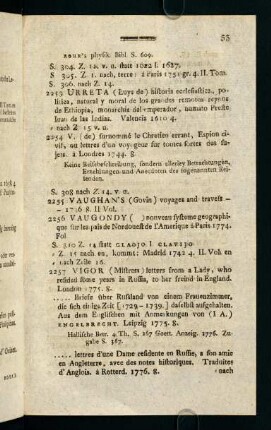 53
BEHR's physik. Bibl S. 609.
S. 304. Z. 12. v. u. statt 1022 l. 1627.
S 305. Z. 1. nach, terre: à Paris 1751 gr. 4. II Tom.
S. 306. nach Z. 14.
2253 URRETA (Luys de) historia ecclesiastica, po-
litica, natural y moral de los grandes remotos reynos
de Ethiopia, monarchia del emperador, numato Preste
Ivan de las Indias. Valencia 1610 4.
nach Z 15 v. u.
2254 V. (de) surnommé le Chretien errant, Espion ci-
vil, ou lettres d'un voyageur sur toutes sortes des su-
jets. à Londres 1744. 8.
Keine Reisebeschreibung, sondern allerley Betrachtungen,
Erzählungen und Anecdoten des sogenannten Rei-
senden.
S. 308 nach Z. 14. v. u.
2255 VAUGHAN'S (Govin) voyages and travels —
— 1736 8. II Vol.
2256 VAUGONDY ( ) nouveau systeme geographi-
que sur les païs de Nordouest de l'Amerique à Paris 1774.
Fol
S. 310 Z 14 statt GLADJO l. CLAVIJO
— Z. 15 nach en, kommt: Madrid 1742 4. II. Voll en
nach Zeile 18.
2257 VIGOR (Mistress) letters from a Lady, who
resided some years in Russia, to her freind in England.
London 1775. 8.
..... Briefe über Russland von einem Frauenzimmer,
die sich einige Zeit [1729 - 1739.] daselbst aufgehalten.
Aus dem Englischen mit Anmerkungen von (I A.)
ENGELBRECHT. Leipzig 1775. 8.
Hallische Ber. 4 Th. S. 267 Goett. Anzeig. 1776. Zu-
gabe S. 367.
..... lettres d'une Dame residente en Russie, a son amie
en Angleterre, avec des notes historiques. Traduites
d'Anglois. à Rotterd. 1776. 8.
nach